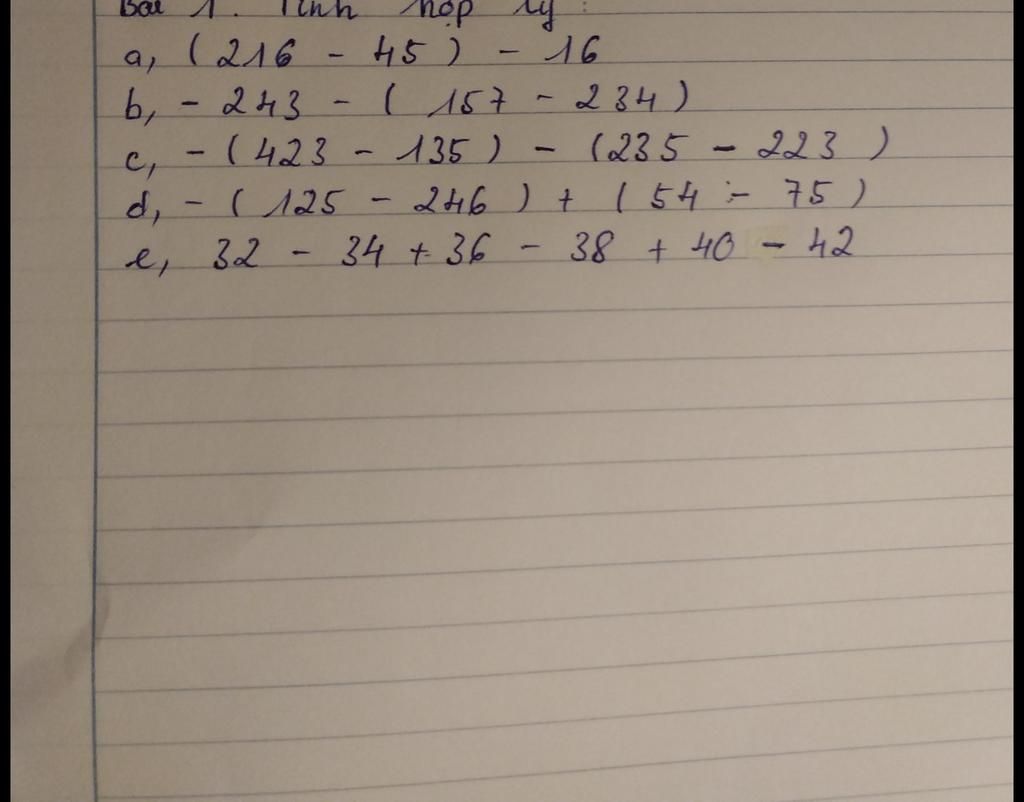 Bài 1. Tính hợp lý :
a, (216 - 45) - 16
b, - 243 - ( 157 - 234)
c, - (423 - 135) - (235 - 223 )
d, - ( 125 - 246 ) + ( 54 - 75 )
e, 32 - 34 + 36 - 38 + 40 - 42